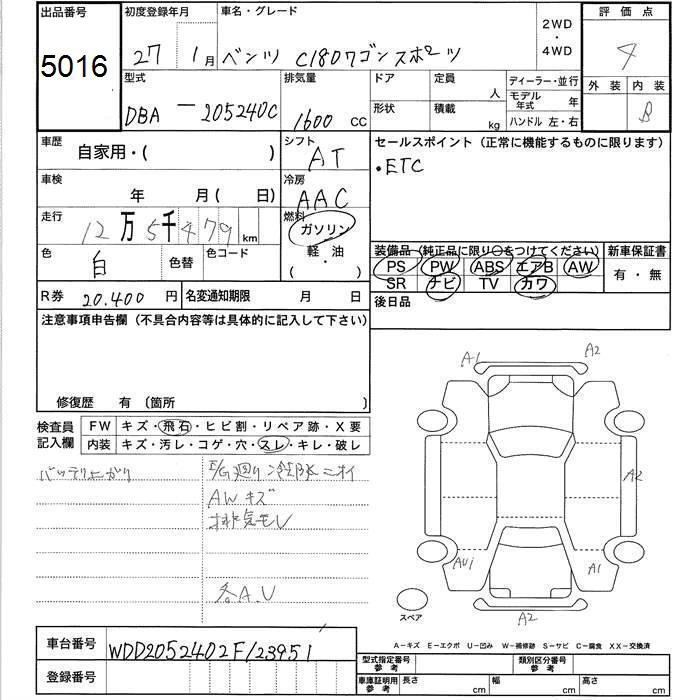 出品番号 初度登録年月 車名・グレード 2WD・4WD 評価点
5016 27 1月 ベンツ C180ワゴンスポーツ 4
型式 排気量 ドア 定員 人 ディーラー・並行 外装 内装
DBA - 205240C 1600 CC 形状 積載 kg モデル年式 年 B
ハンドル 左・右
車歴 自家用・( ) シフト AT セールスポイント (正常に機能するものに限ります)
・ETC
車検 年 月( 日) 冷房 AAC
走行 12万5千479km 燃料 ガソリン
軽・油
( ・ )
色 白 色替 色コード
装備品 (純正品に限り○をつけてください) 新車保証書
PS PW ABS エアB AW 有・無
SR ナビ TV カワ
R券 20.400 円 名変通知期限 月 日 後日品
注意事項申告欄 (不具合内容等は具体的に記入して下さい)
修復歴 有 〔箇所 〕
検査員記入欄 FW キズ・飛石・ヒビ割・リペア跡・X要
内装 キズ・汚レ・コゲ・穴・スレ・キレ・破レ
バッテリ上がり E/G廻り冷却水ニオイ
AWキズ
排気モレ
各A.U
A1 A2
A2
AU1 A1
スペア A2
A-キズ E-エクボ U-凹み W-補修跡 S-サビ C-腐食 XX-交換済
車台番号 WDD2052402F123951
登録番号
型式指定番号 参考 類別区分番号 参考
車庫証明用 参考 長さ cm 幅 cm 高さ cm